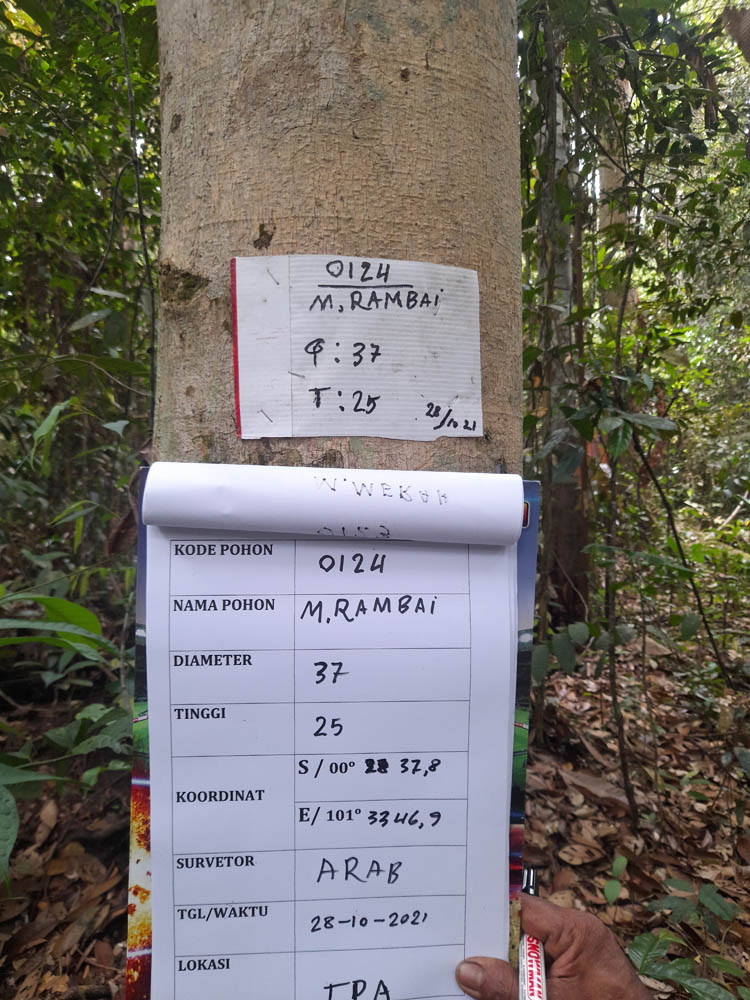 0124
M, RAMBAI
φ : 37
T : 25
28/10 21
M. MERAH
KODE POHON 0124
NAMA POHON M, RAMBAI
DIAMETER 37
TINGGI 25
KOORDINAT
S / 00° 28 37,8
E/ 101° 33 46,9
SURVETOR ARAB
TGL/WAKTU 28-10-2021
LOKASI TPA